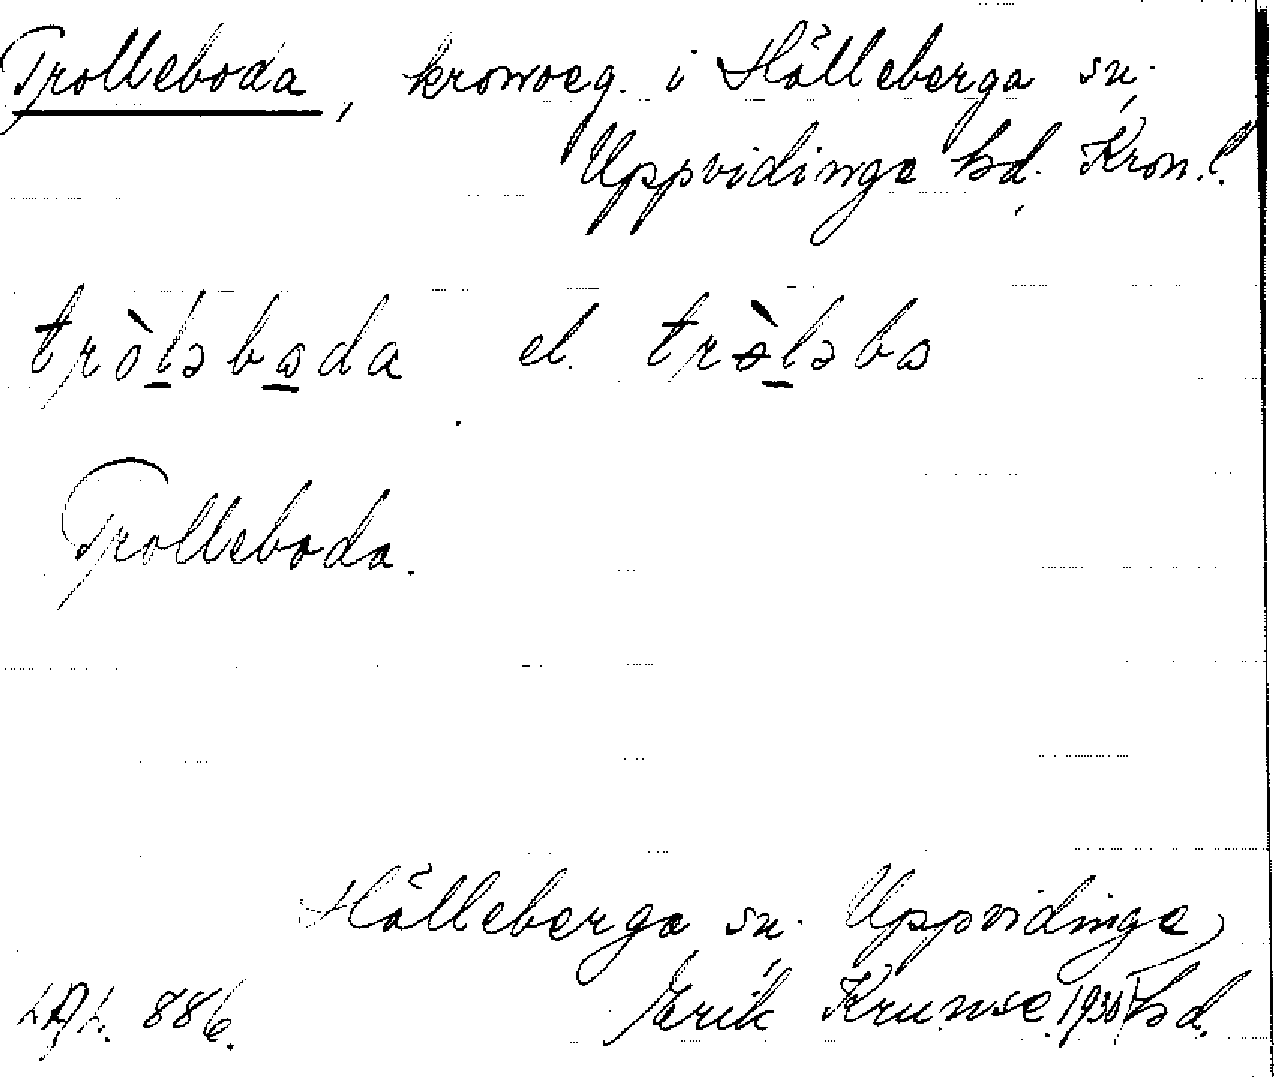 Trolleboda, kronoeg. i Hälleberga sn.
Uppvidinge hd. Kron. l.
tròləbɷda el. tròləbɷ
Trolleboda.
Hälleberga sn. Uppvidinge
hd.
LAL. 886. Erik Krunse. 1930